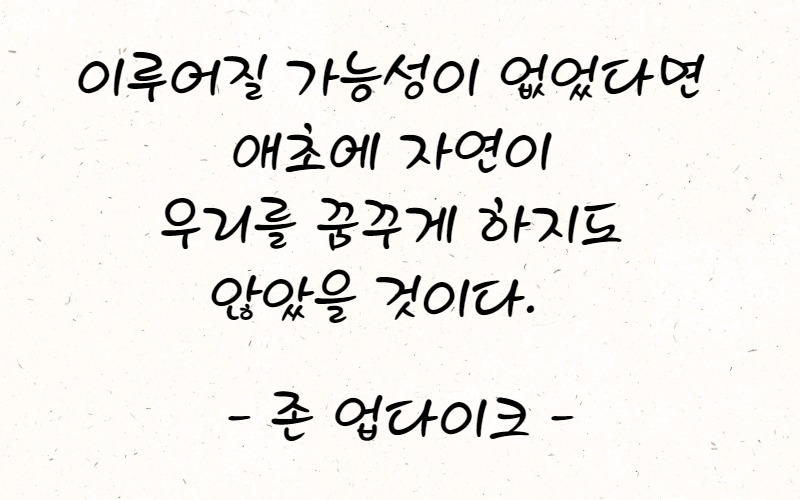 이루어질 가능성이 없었다면
애초에 자연이
우리를 꿈꾸게 하지도
않았을 것이다.
- 존 업다이크 -